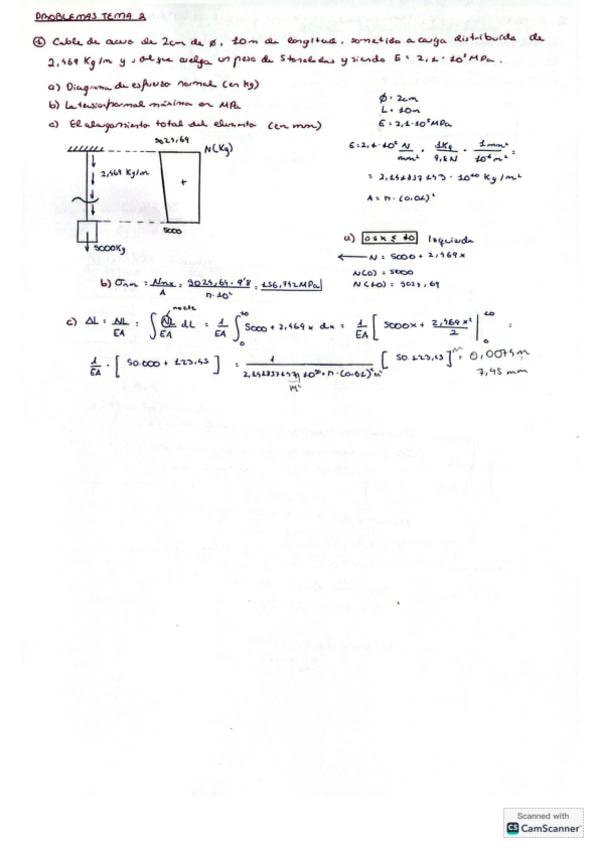 PROBLEMAS TEMA 2
① Cable de acero de 2cm de ø, 10m de longitud, sometido a carga distribuida de
2,469 Kg/m y, del que cuelga un peso de 5 toneladas y siendo E = 2,1 · 10⁵ MPa.
a) Diagrama de esfuerzo normal (en Kg)
b) La tensión normal máxima en MPa
c) El alargamiento total del elemento (en mm)
ø = 2cm
L = 10m
E = 2,1 · 10⁵ MPa
E = 2,1 · 10⁵ N/mm² · 1Kg/9,8N · 1mm²/10⁻⁶m² =
= 2,142857143 · 10¹⁰ Kg/m²
A = π · (0.01)²
5024,69
N(Kg)
2,469 Kg/m
+
5000
5000Kg
a) 0 ≤ x ≤ 10 Izquierda
N = 5000 + 2,469x
N(0) = 5000
N(10) = 5024,69
b) σnx = Nnx/A = 5024,69 · 9'8/π · 10² = 156,742MPa
c) ΔL = NL/EA = ∫ NL/EA dL = 1/EA ∫₀¹⁰ 5000 + 2,469x dx = 1/EA [ 5000x + 2,469x²/2 ]₀¹⁰ =
1/EA · [ 50.000 + 123,45 ] = 1/2,142857143 · 10¹⁰ · π · (0.01)² m² [ 50.123,45 ] m = 0,0074m
m²
7,45 mm
Scanned with
CS CamScanner